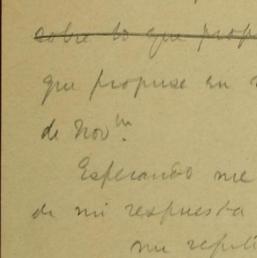 sobre lo que prop
que propuse en
de Novbre.
Esperando me
de mi respuesta
me repit